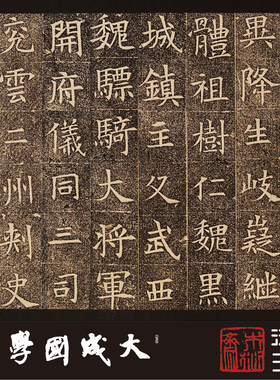 異降生岐嶷継
體祖樹仁魏黒
城鎮主父武西
魏驃騎大將軍
開府儀同三司
兖雲二州刾史
大成國學